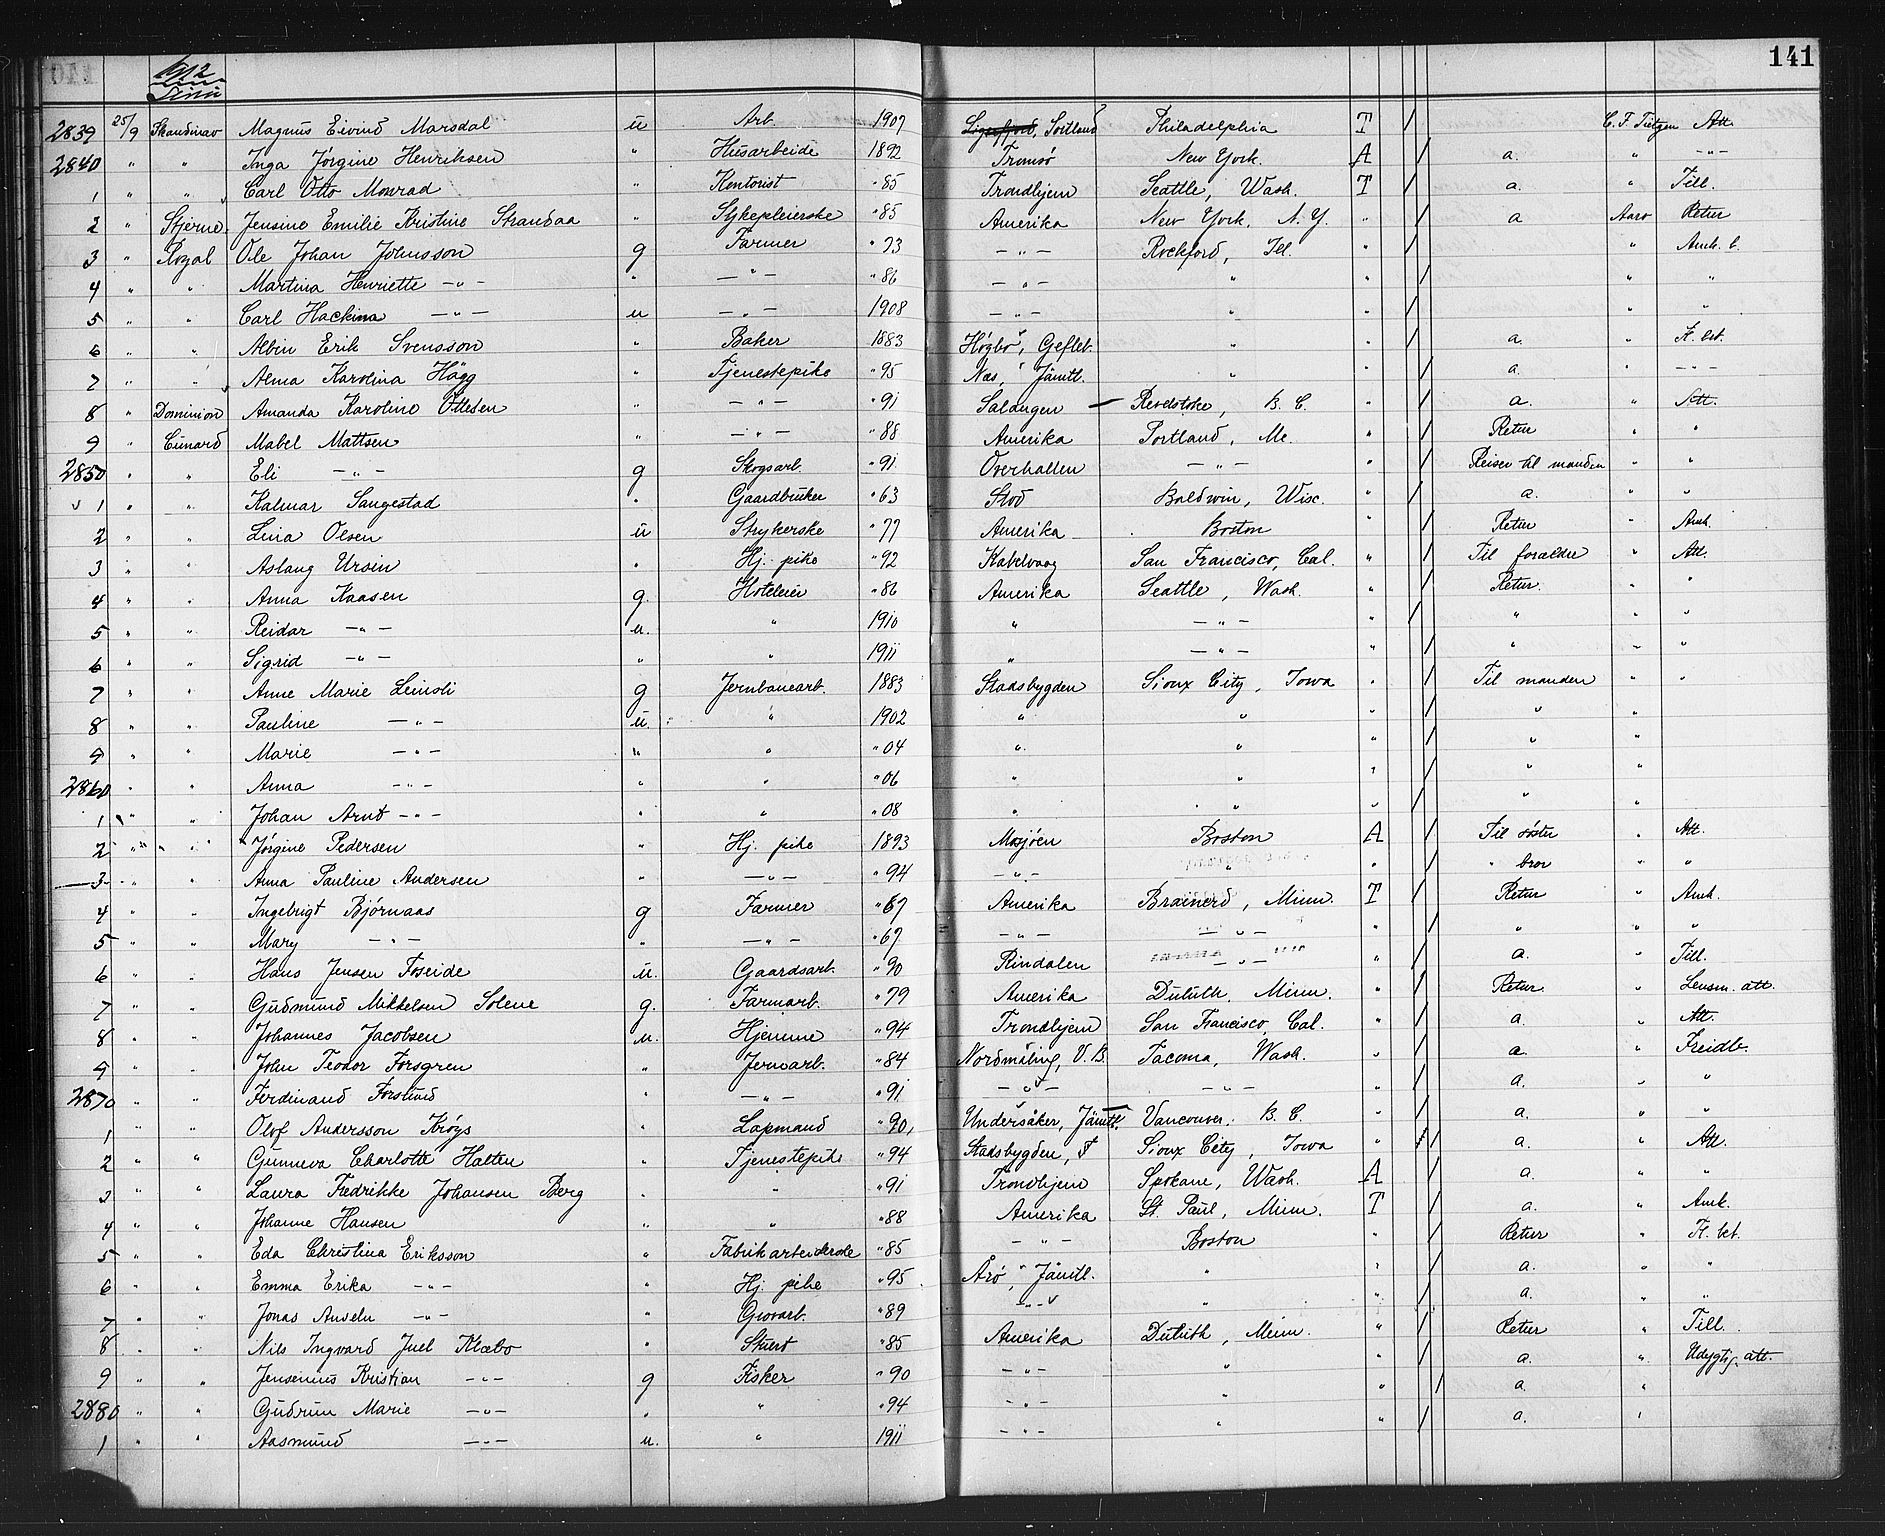 1912
Linie
141
2839 25/9 Skandinav Magnus Eivind Marsdal u Arb. 1907 Sortland Philadelphia T / C. F. Tietgen Att.
2840 " " Inga Jørgine Henriksen " Husarbeide 1892 Tromsø New York. A / a. " -"-
1 " " Carl Otto Monrad " Kontorist "85 Trondhjem Seattle, Wash. T / a. " Till.
2 " Stjerne. Jensine Emilie Kristine Strandaa " Sykepleierske "85 Amerika New York, N. Y. " / a Aaro Retur
3 " Royal Ole Johan Johnsson g Farmer "73 -"- Rockford, Ill. " / " Amk. b.
4 " " Martina Henriette -"- " -"- "86 -"- " " / " "
5 " " Carl Hackina -"- u -"- 1908 -"- " " / " "
6 " " Albin Erik Svensson " Baker 1883 Högbo, Gefleb. " " / a. "
7 " " Alma Karolina Hägg " Tjenestepike "95 Nes, Jämtl. " " / a. " -"-
8 " Dominion Amanda Karoline Ottesen " -"- "91 Salangen Revelstoke, B. C. " / a. " Att.
9 " Cunard Mabel Mattsen " -"- "88 Amerika Portland, Me. " / Retur " "
2850 " " Eli -"- g Skogsarb. "91 Overhallen -"- " / Reiser til manden " "
1 " " Kalmar Sangestad " Gaardbruker "63 Stod Baldwin, Wisc. " / a. " "
2 " " Lina Olsen u Strykerske "77 Amerika Boston " / Retur " Amk.
3 " " Aslaug Ursin " Hj. pike "92 Kabelvaag San Francisco, Cal. " / Til foraeldre " Att.
4 " " Anna Kaasen g. Hoteleier "86 Amerika Seattle, Wash. " / Retur. " "
5 " " Reidar -"- u. " 1910 " -"- " / " " "
6 " " Sigrid -"- " " 1911 " -"- " / " " "
7 " " Anne Marie Leinsli g Jernbanearb. 1883 Stadsbygden Sioux City, Iowa " / Til manden " "
8 " " Pauline -"- u. " 1902 " " " / " "
9 " " Marie -"- " " "04 " " " / " "
2860 " " Anna -"- " " "06 " " " / " "
1 " " Johan Arnt -"- " " "08 " " " / " "
2 " " Jørgine Pedersen " Hj. pike 1893 Mosjøen Boston A / Til søster " Att.
3 " " Anna Pauline Andersen " -"- "94 -"- " / " bror " "
4 " " Ingebrigt Bjørnaas g Farmer "67 Amerika Brainerd, Minn. T / Retur " Amk.
5 " " Mary -"- " -"- "67 -"- -"- " / " " "
6 " " Hans Jensen Foseide u. Gaardsarb. "90 Rindalen -"- " / a. " Till.
7 " " Gudmund Mikkelsen Solene g. Farmarb. "79 Amerika Duluth, Minn. " / Retur " Lensm. att.
8 " " Johannes Jacobsen u. Hjemme "94 Trondhjem San Francisco, Cal. " / a. " Att.
9 " " John Teodor Forsgren " Jernarb. "84 Nordmaling, V. B. Tacoma, Wash. " / a. " Freidb.
2870 " " Ferdinand Forslund " -"- "91 -"- -"- " / a. " "
1 " " Olof Andersson Kröys " Lapmand "90, Undersåker, Jämtl. Vancouver, B. C. " / a. " "
2 " " Gunneva Charlotte Halten " Tjenestepike "94 Stadsbygden, Sioux City, Iowa " // a. " Att.
3 " " Laura Fredrikke Johansen Berg " " "91 Trondhjem Spokane, Wash. A / a. " "
4 " " Johanne Hansen " " "88 Amerika St. Paul, Minn. T / a. " Amk.
5 " " Eda Christina Eriksson " Fabrikarbeiderske "85 -"- Boston " / Retur "
6 " " Emma Erika -"- " Hj. pike "95 Jämtl. " " / a. " "
7 " " Jonas Anselm -"- " Gruvarb. "89 -"- " " / a. " "
8 " " Nils Ingvard Juel Klæbo " Stuert "85 Amerika Duluth, Minn. " / Retur " Till.
9 " " Jensenius Kristian -"- g Fisker "90 -"- " " / a. " Udygtig. att.
2880 " " Gudrun Marie -"- " " "94 -"- " " / a. "
1 " " Aasmund -"- u. " 1911 -"- " " / a. "